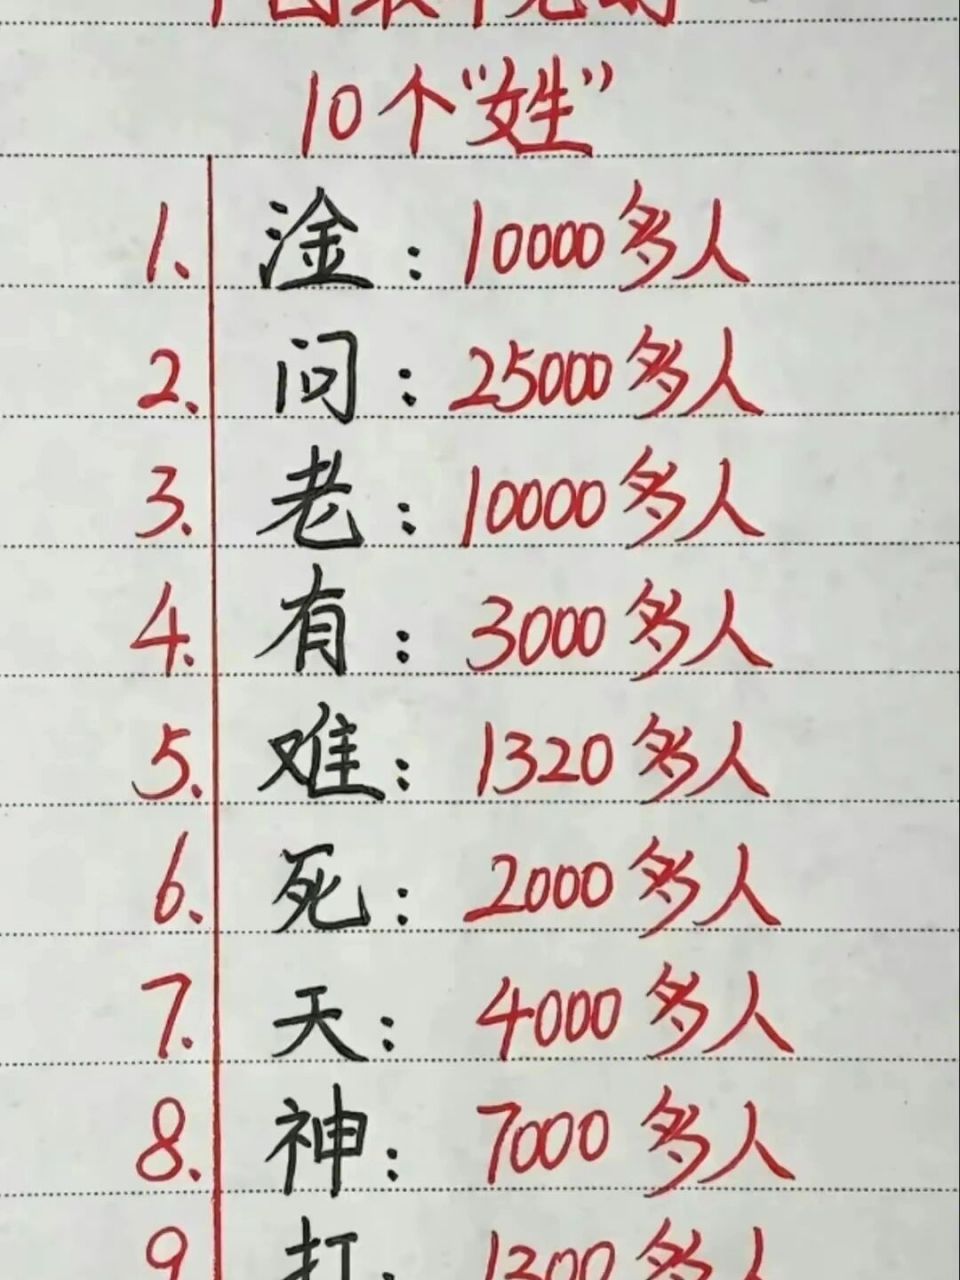 中国最罕见的
10个“姓”
1. 淦：10000多人
2. 问：25000多人
3. 老：10000多人
4. 有：3000多人
5. 难：1320多人
6. 死：2000多人
7. 天：4000多人
8. 神：7000多人
9. 打：1300多人